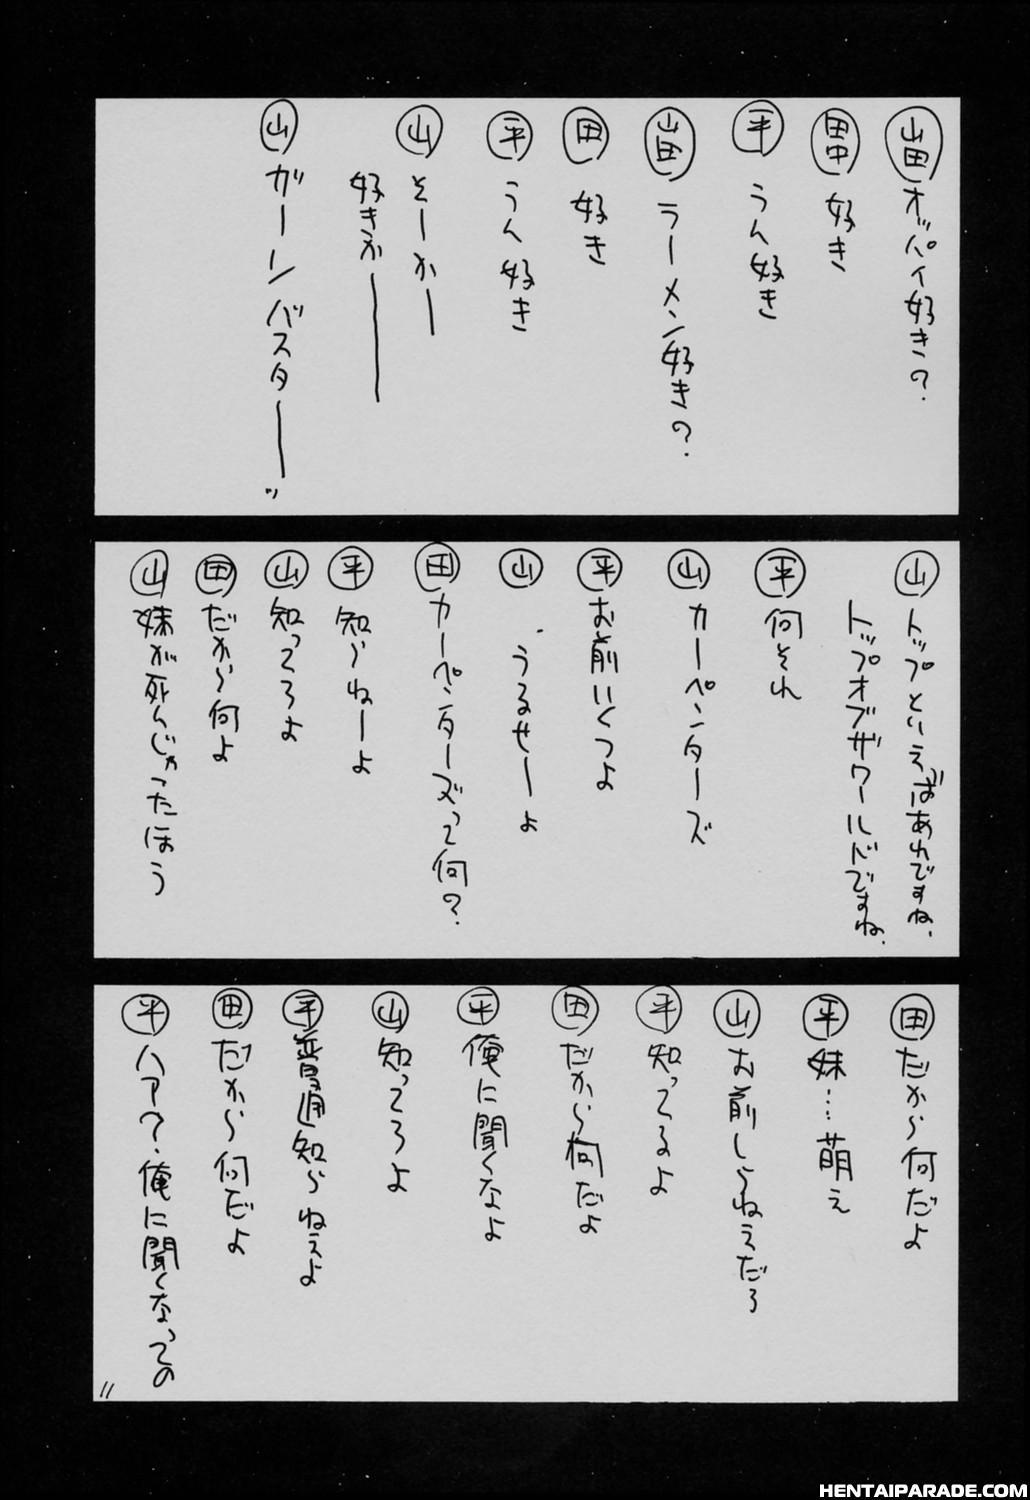 山田 オッパイ好き？
田中 好き
平 うん好き
山田 ラーメン好き？
田 好き
平 うん好き
山 そーかー
好きかー
山 ガーンバスターーッ
山 トップといえばあれですね、
トップオブザワールドですね、
平 何それ
山 カーペンターズ
平 お前いくつよ
山 うるせーよ
田 カーペンターズって何？
平 知らねーよ
山 知ってろよ
田 だから何よ
山 妹が死んじゃったほう
田 だから何だよ
平 妹…萌え
山 お前しらねえだろ
平 知ってるよ
田 だから何だよ
平 俺に聞くなよ
山 知ってろよ
平 普通知らねえよ
田 だから何だよ
平 ハア？俺に聞くなっての
11
HENTAIPARADE.COM